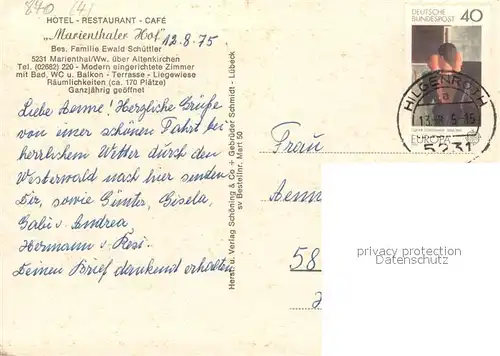 840 (4)
HOTEL - RESTAURANT - CAFÉ
„Marienthaler Hof"
12.8.75
Bes. Familie Ewald Schüttler
5231 Marienthal/Ww. über Altenkirchen
Tel. (02682) 220 - Modern eingerichtete Zimmer
mit Bad, WC u. Balkon - Terrasse - Liegewiese
Räumlichkeiten (ca. 170 Plätze)
Ganzjährig geöffnet
Liebe Aenne! Herzliche Grüße
von einer schönen Fahrt bei
herrlichem Wetter durch den
Westerwald nach hier senden
Dir, sowie Günter, Gisela,
Gabi u. Andrea
Hermann u. Resi.
Deinen Brief dankend erhalten
Herst. u. Verlag Schöning & Co + Gebrüder Schmidt - Lübeck
sv Bestellnr. Mart 50
DEUTSCHE
BUNDESPOST 40
EUROPA
HILGENROTH
a
5231
Frau
Aenn
58
privacy protection
watermark